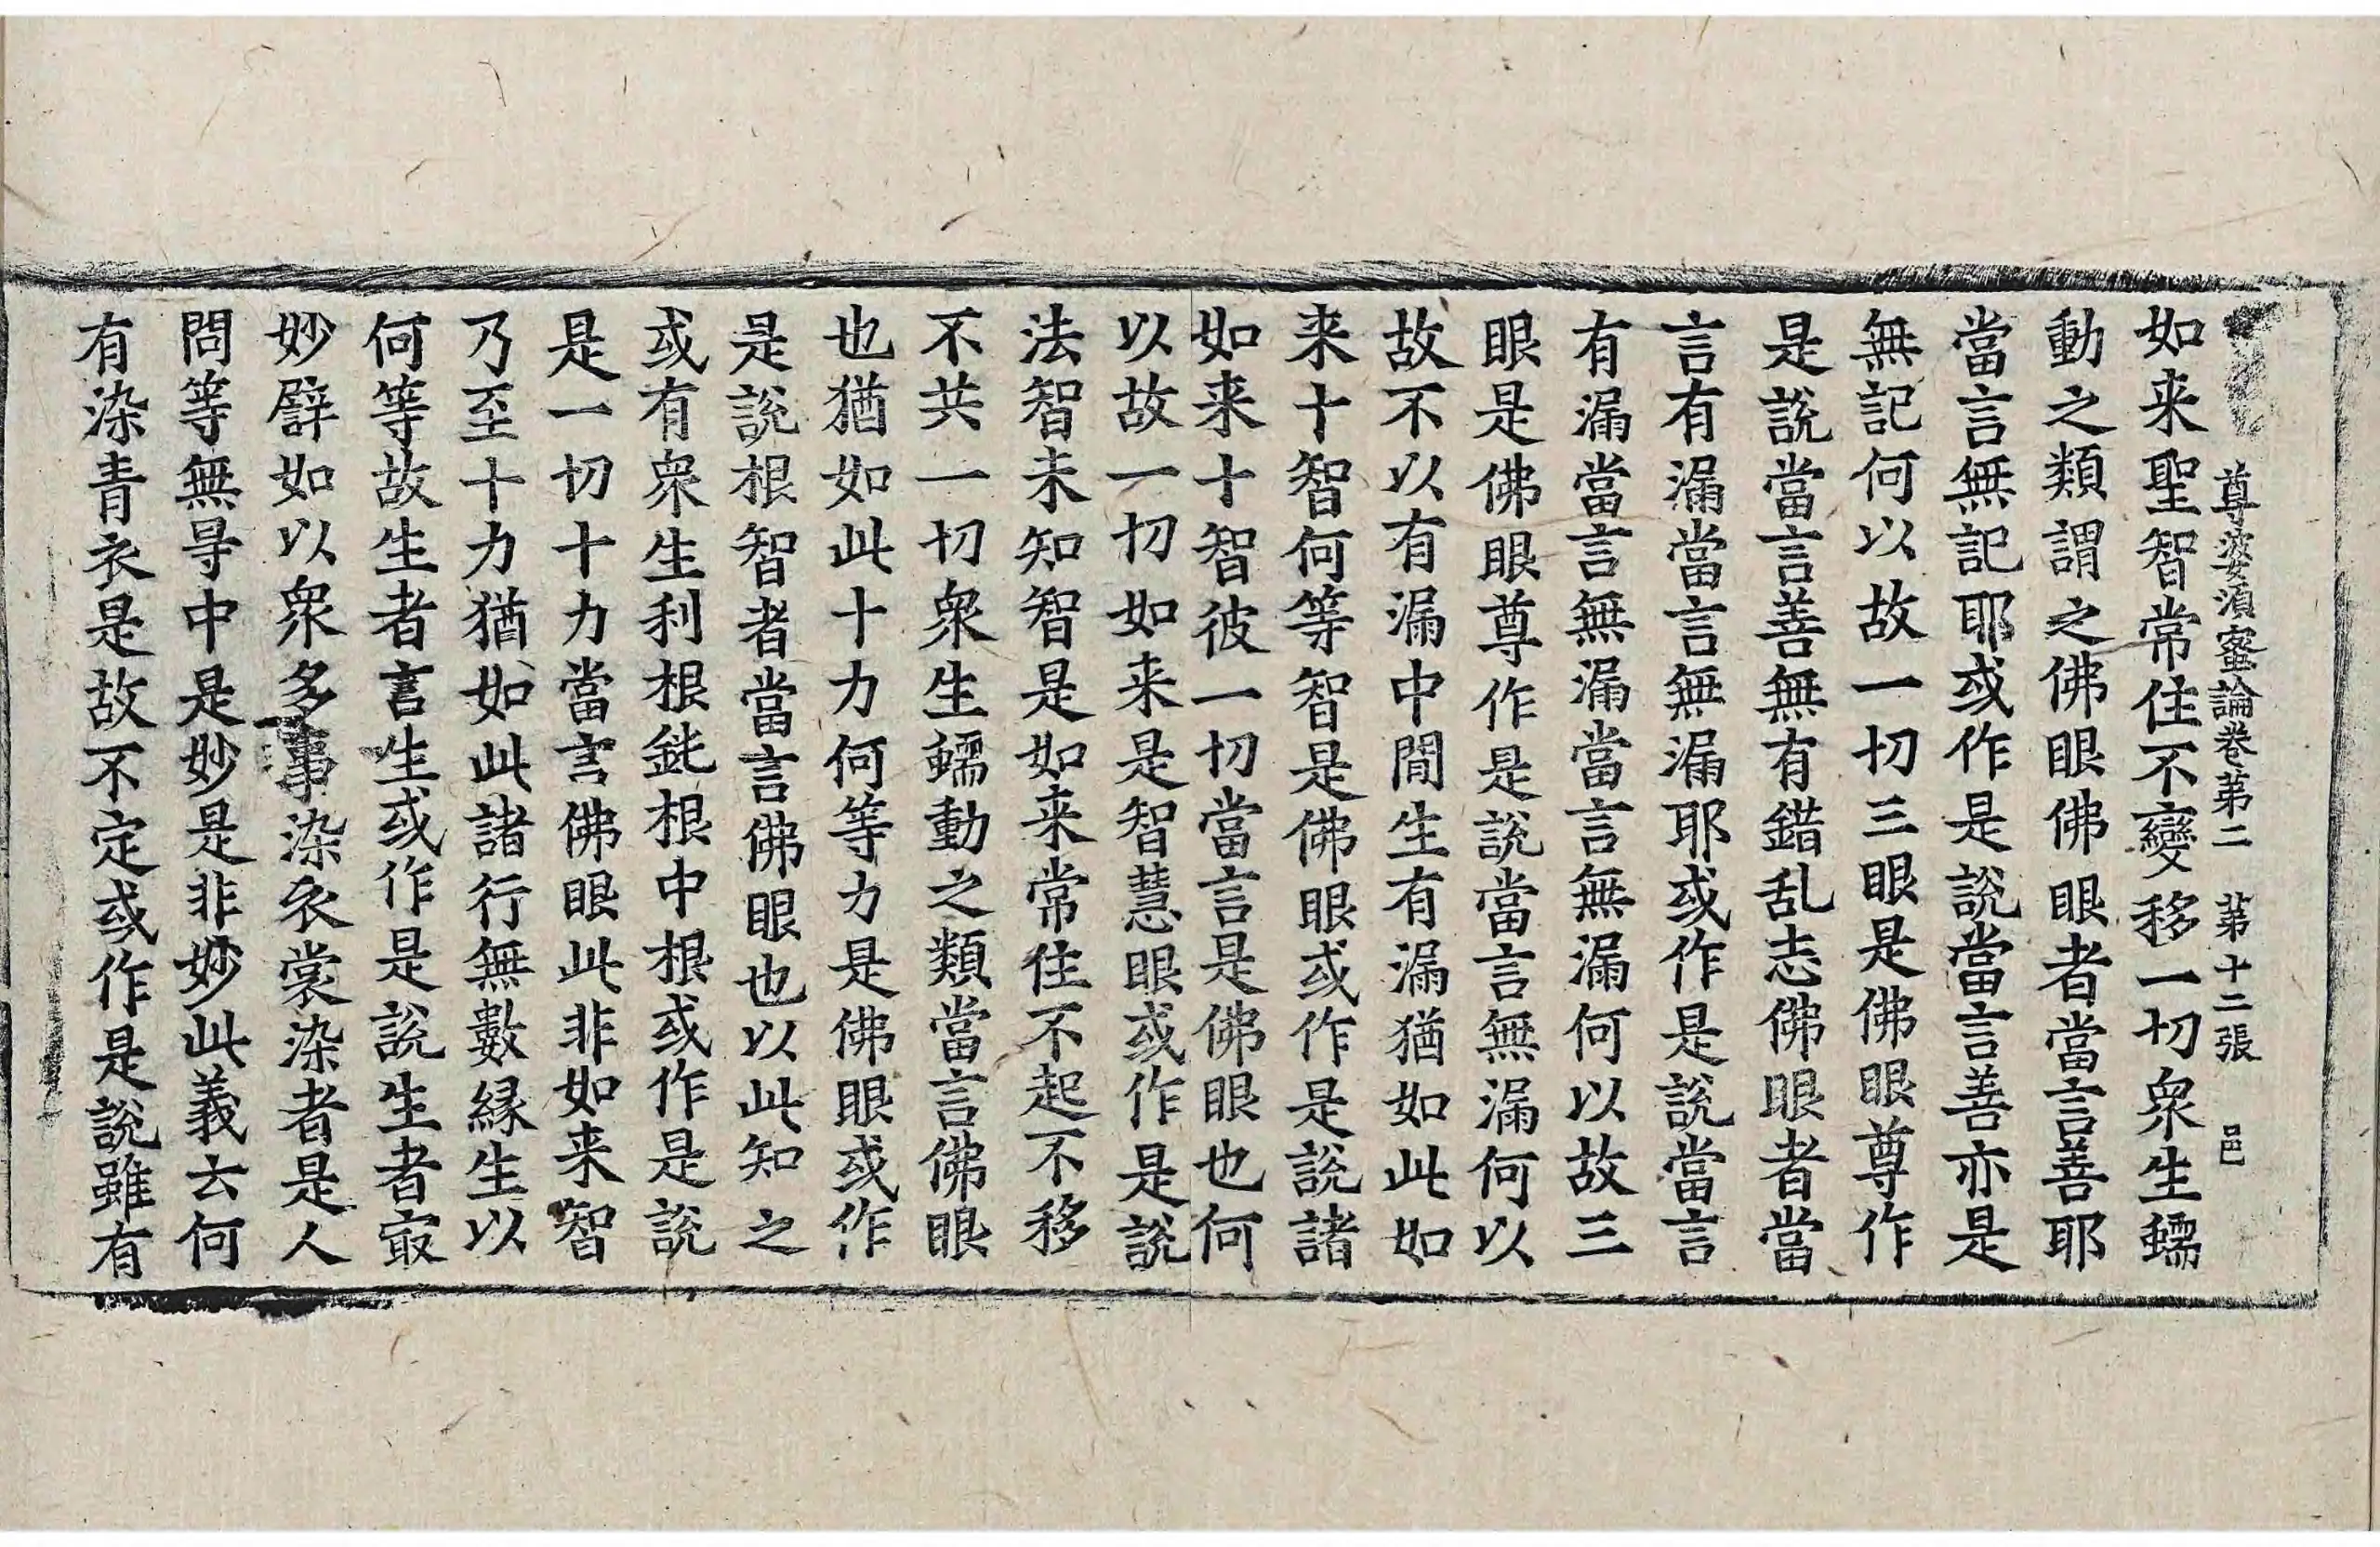 尊婆須蜜論卷第二　第十二張　邑
如来聖智常住不變移一切衆生蠕
動之類謂之佛眼佛眼者當言善耶
當言無記耶或作是說當言善亦是
無記何以故一切三眼是佛眼尊作
是說當言善無有錯乱志佛眼者當
言有漏當言無漏耶或作是說當言
有漏當言無漏當言無漏何以故三
眼是佛眼尊作是說當言無漏何以
故不以有漏中間生有漏猶如此如
来十智何等智是佛眼或作是說諸
如来十智彼一切當言是佛眼也何
以故一切如来是智慧眼或作是說
法智未知智是如来常住不起不移
不共一切衆生蠕動之類當言佛眼
也猶如此十力何等力是佛眼或作
是說根智者當言佛眼也以此知之
或有衆生利根鈍根中根或作是說
是一切十力當言佛眼此非如来智
乃至十力猶如此諸行無數緣生以
何等故生者言生或作是說生者㝡
妙譬如以衆多事染衣裳染者是人
問等無㝵中是妙是非妙此義云何
有染青衣是故不定或作是說雖有